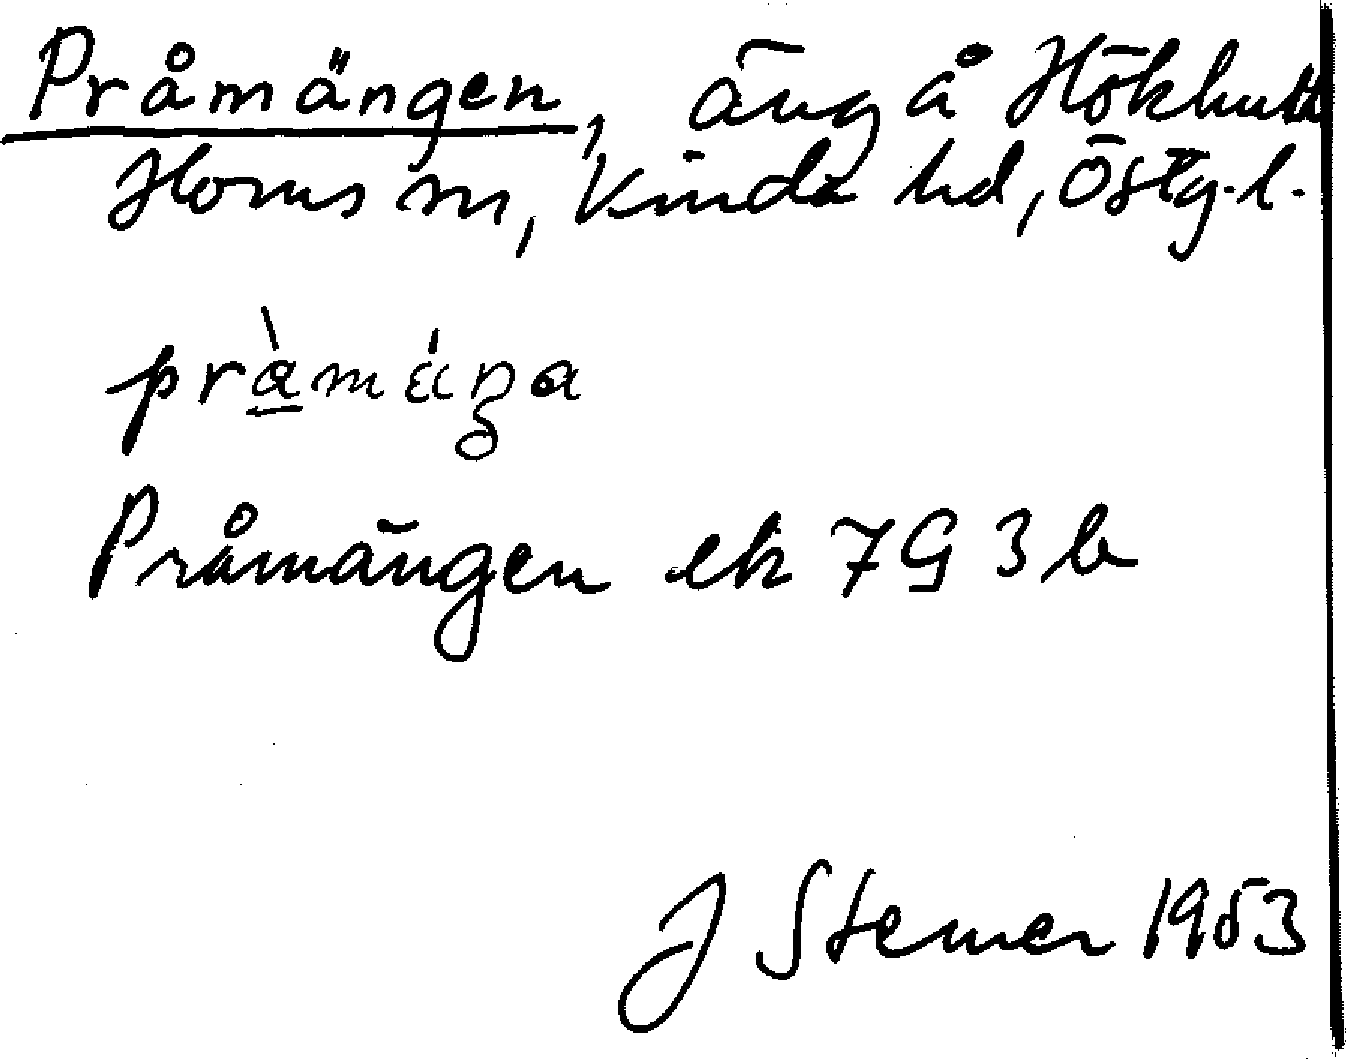 Pråmängen, äng å Hökhult
Horns sn, Kinda hd, Östg. l.
pràmáŋa
Pråmängen ek 7G3b
J Stemer 1953